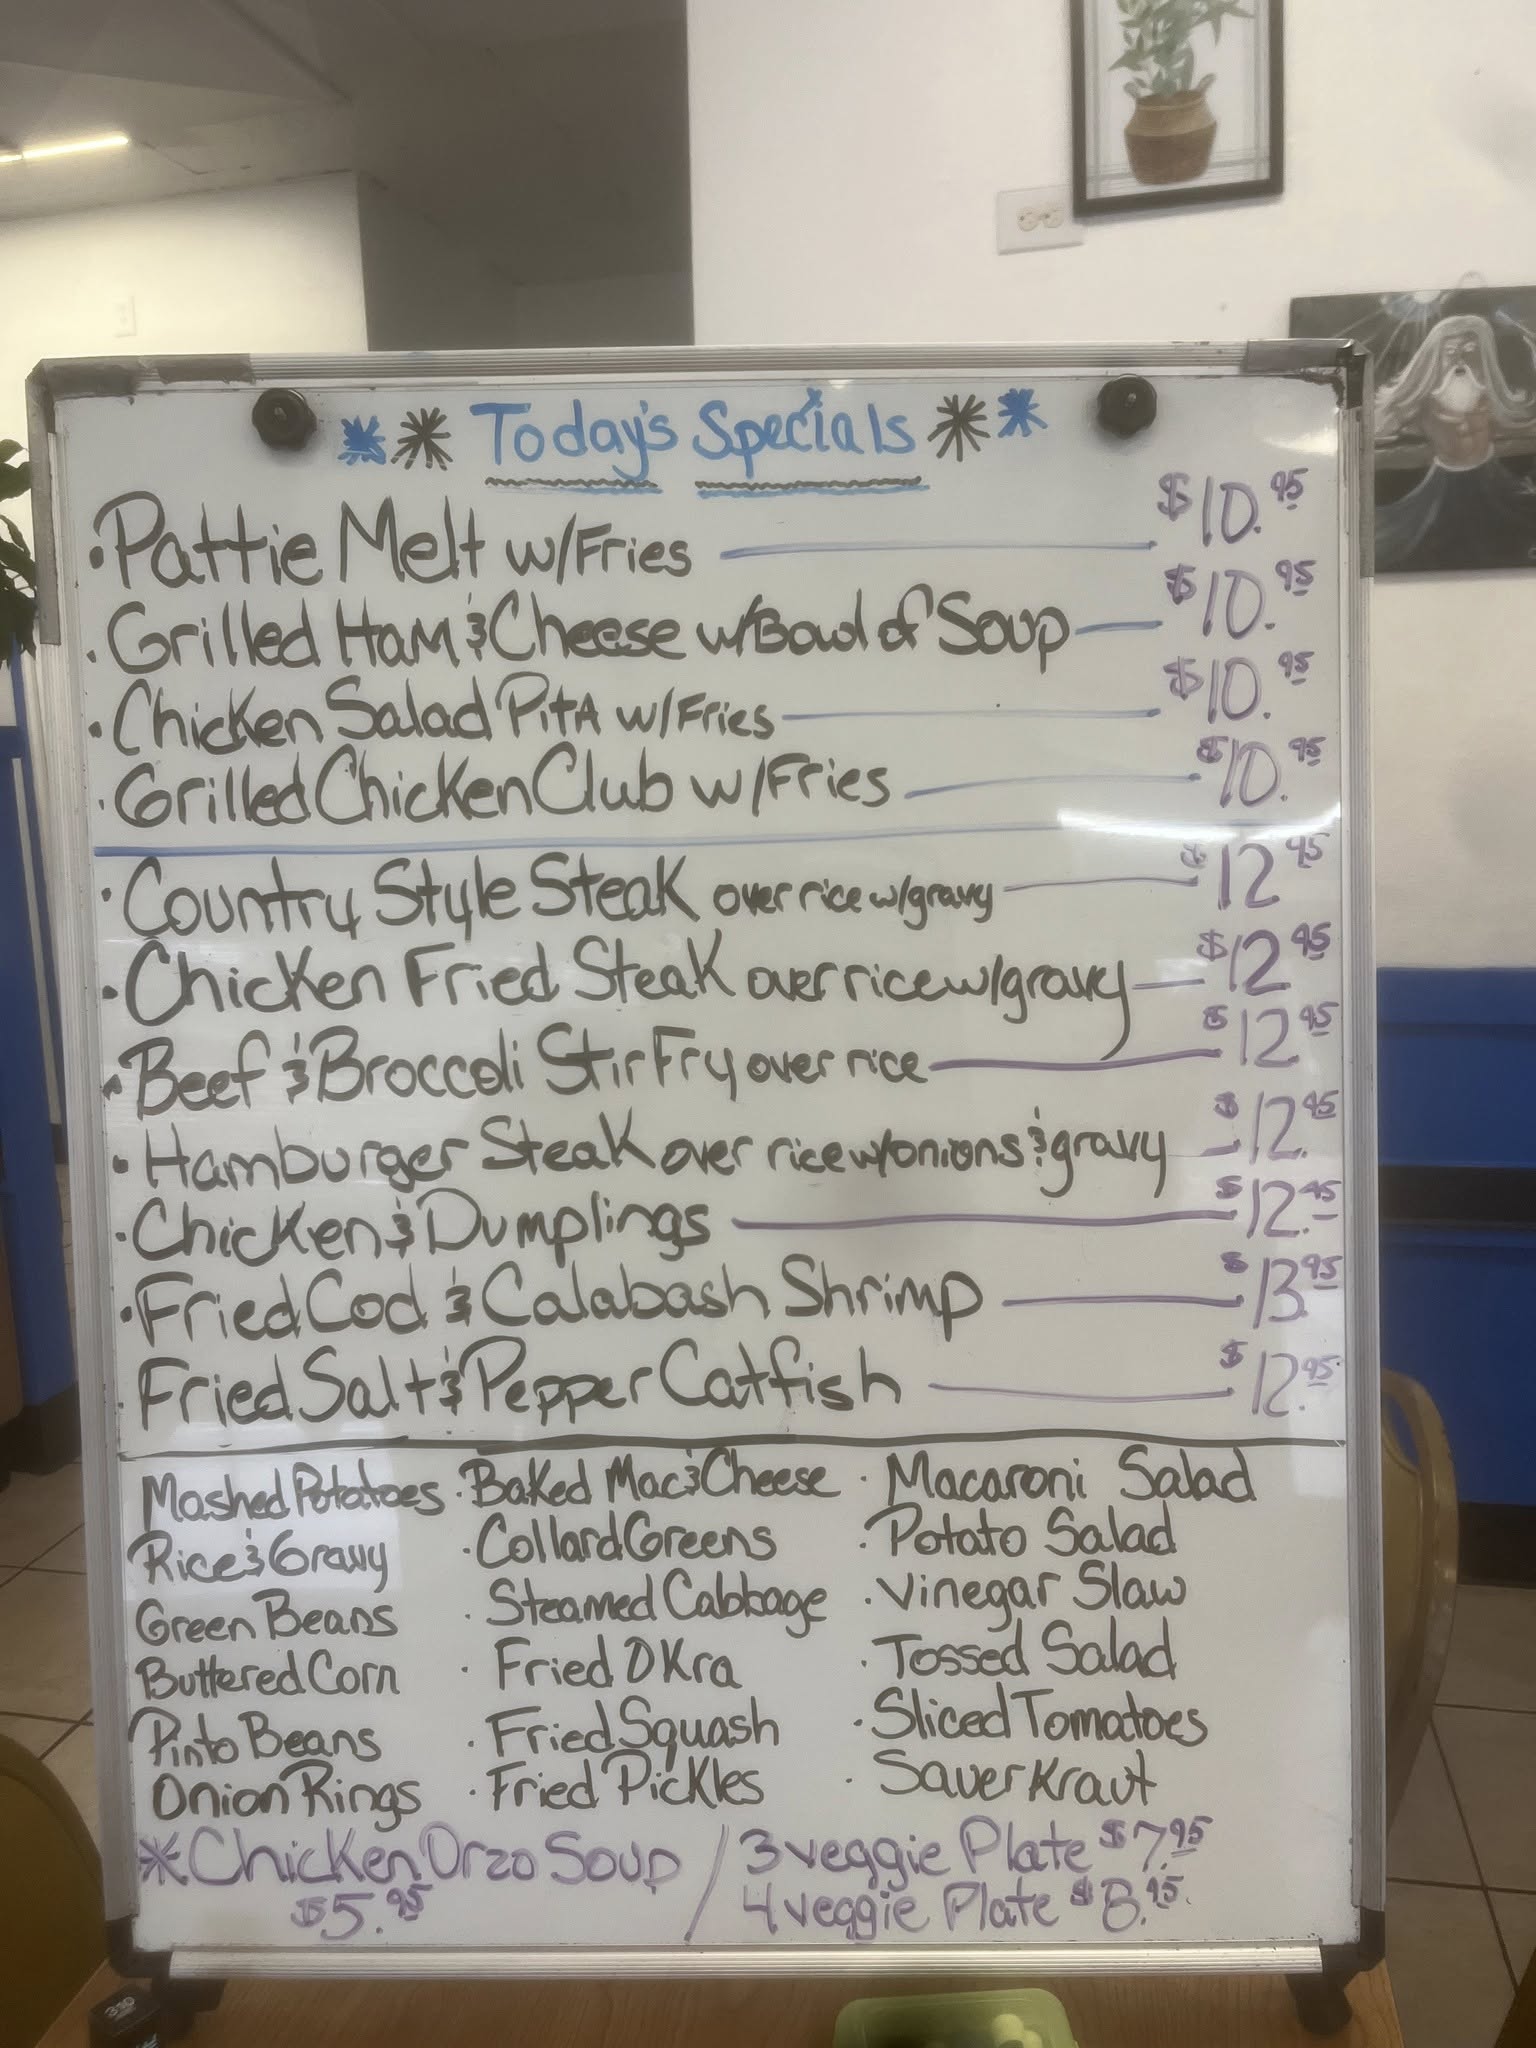 Today's Specials
Pattie Melt w/Fries $10.95
Grilled Ham & Cheese w/Bowl of Soup $10.95
Chicken Salad Pita w/Fries $10.95
Grilled Chicken Club w/Fries $10.95
Country Style Steak over rice w/gravy $12.95
Chicken Fried Steak over rice w/gravy $12.95
Beef & Broccoli Stir Fry over rice $12.95
Hamburger Steak over rice w/onions & gravy $12.95
Chicken & Dumplings $12.95
Fried Cod & Calabash Shrimp $13.95
Fried Salt & Pepper Catfish $12.95
Mashed Potatoes · Baked Mac & Cheese · Macaroni Salad
Rice & Gravy · Collard Greens · Potato Salad
Green Beans · Steamed Cabbage · Vinegar Slaw
Buttered Corn · Fried Okra · Tossed Salad
Pinto Beans · Fried Squash · Sliced Tomatoes
Onion Rings · Fried Pickles · Sauer Kraut
*Chicken Orzo Soup / 3 veggie Plate $7.95
$5.95 4 veggie Plate $8.95